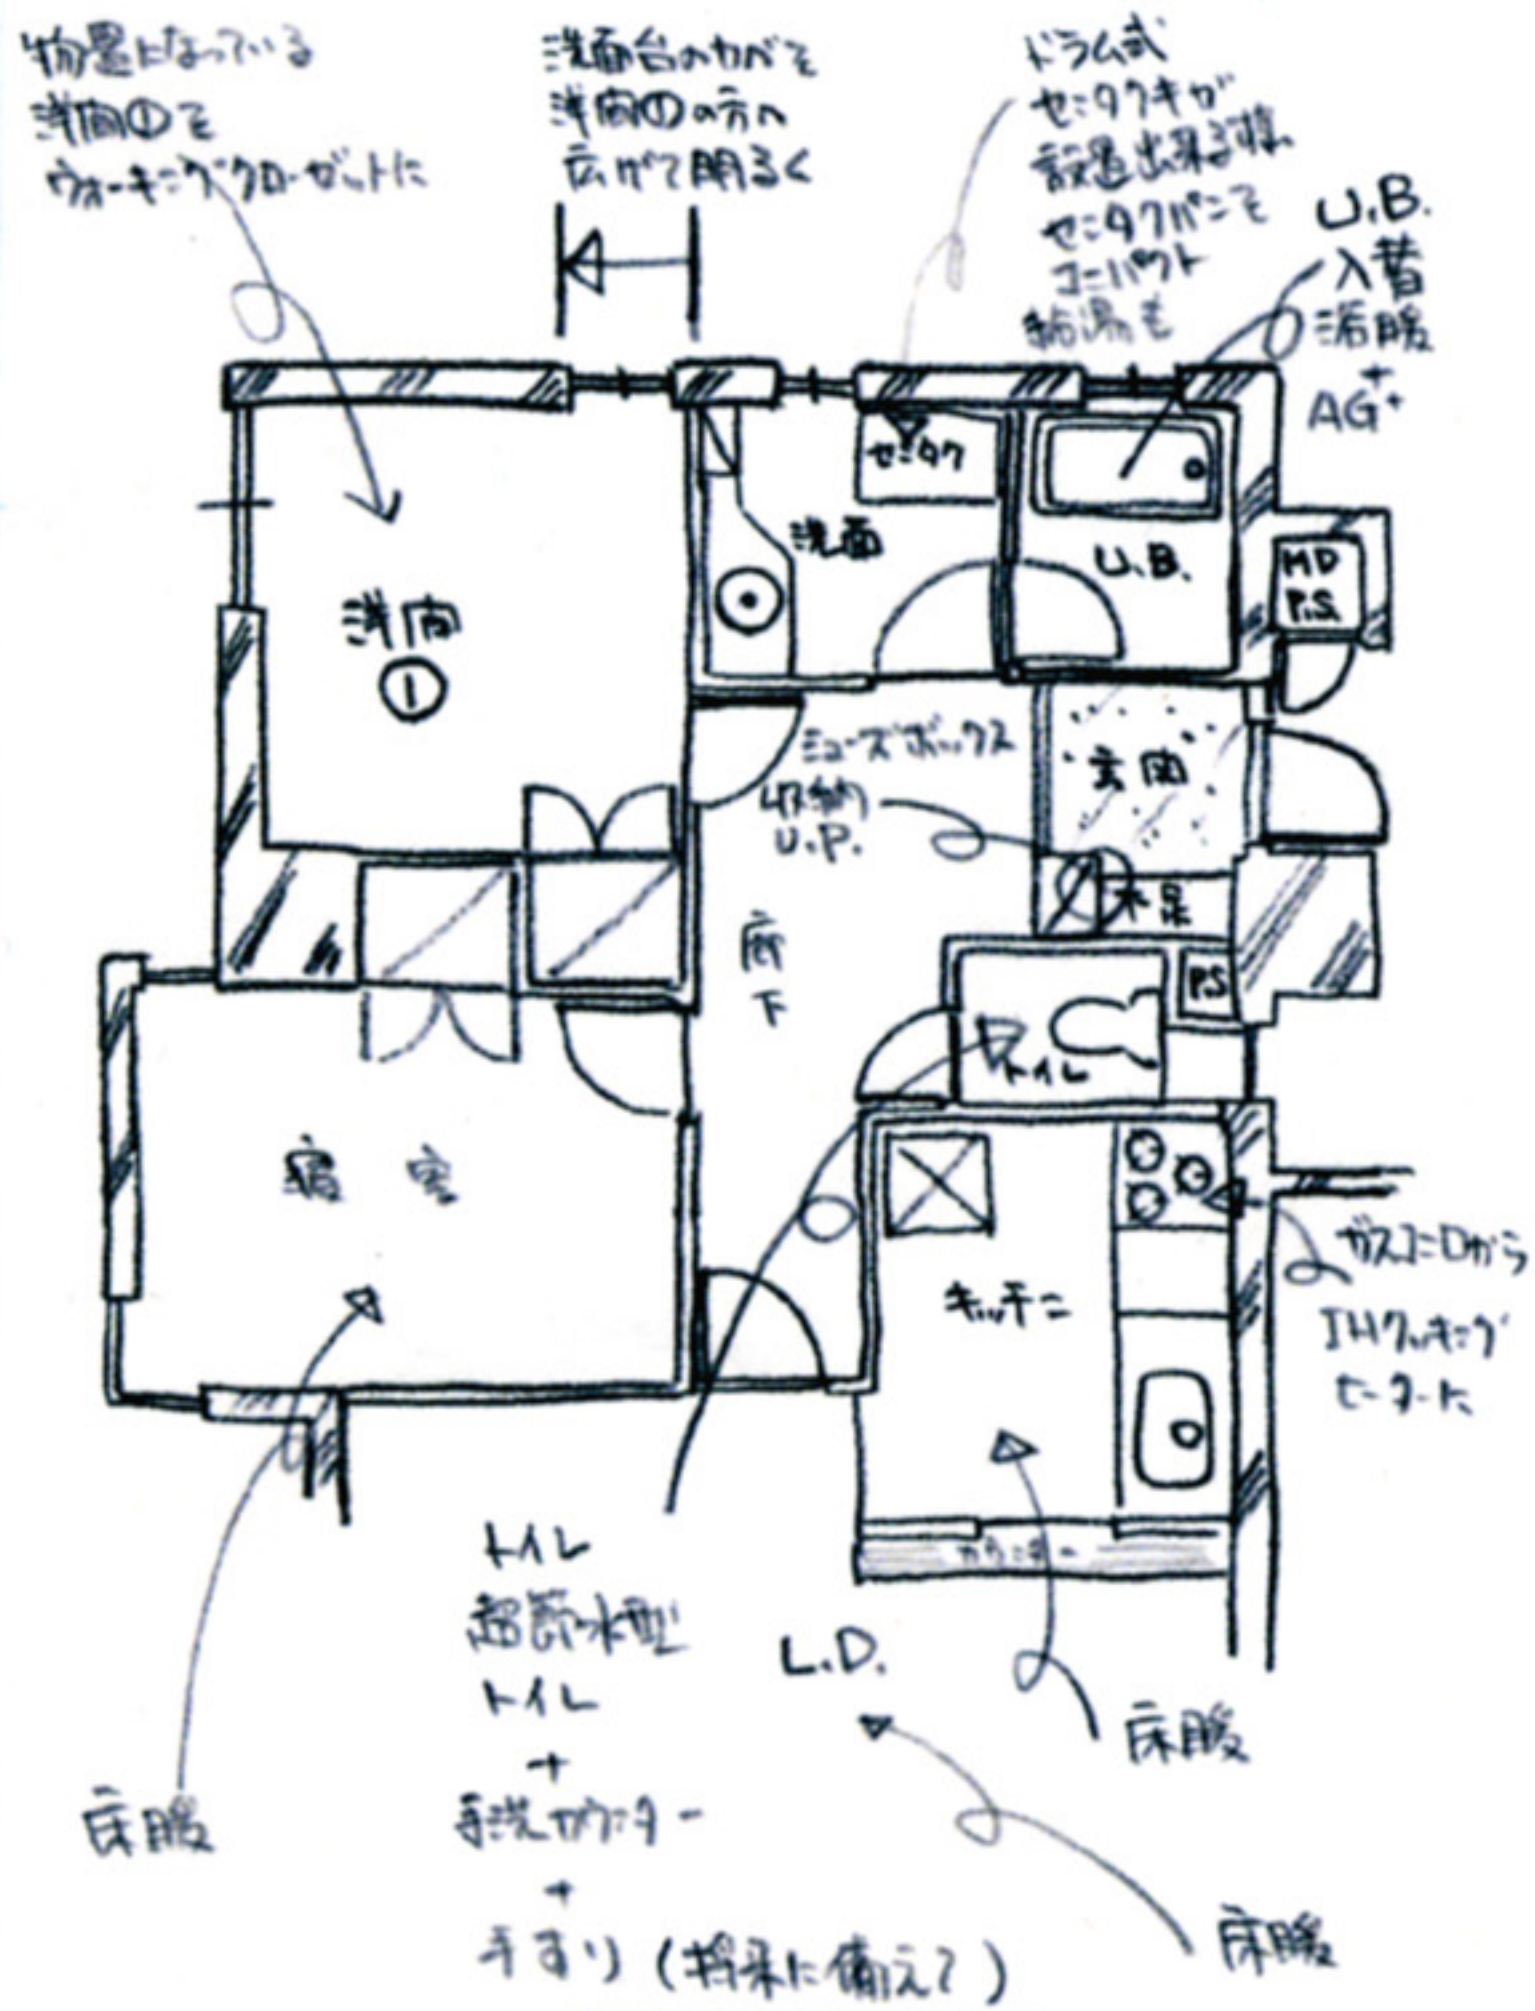 物置になっている
洋間①を
ウォーキングクローゼットに
洗面台のカベを
洋間①の方へ
広げて明るく
ドラム式
センタクキが
設置出来る様
センタクパンを
コンパクト
給湯も
U.B.
入替
浴暖
+
AG+
センタク
洗面
U.B.
MD
P.S
洋間
①
ミューズボックス
収納
U.P.
玄関
下足
廊
下
P.S
トイレ
寝室
キッチン
ガスコンロから
IHクッキング
ヒーターに
カウンター
トイレ
超節水型
トイレ
+
手洗カウンター
+
手すり(将来に備えて)
L.D.
床暖
床暖
床暖